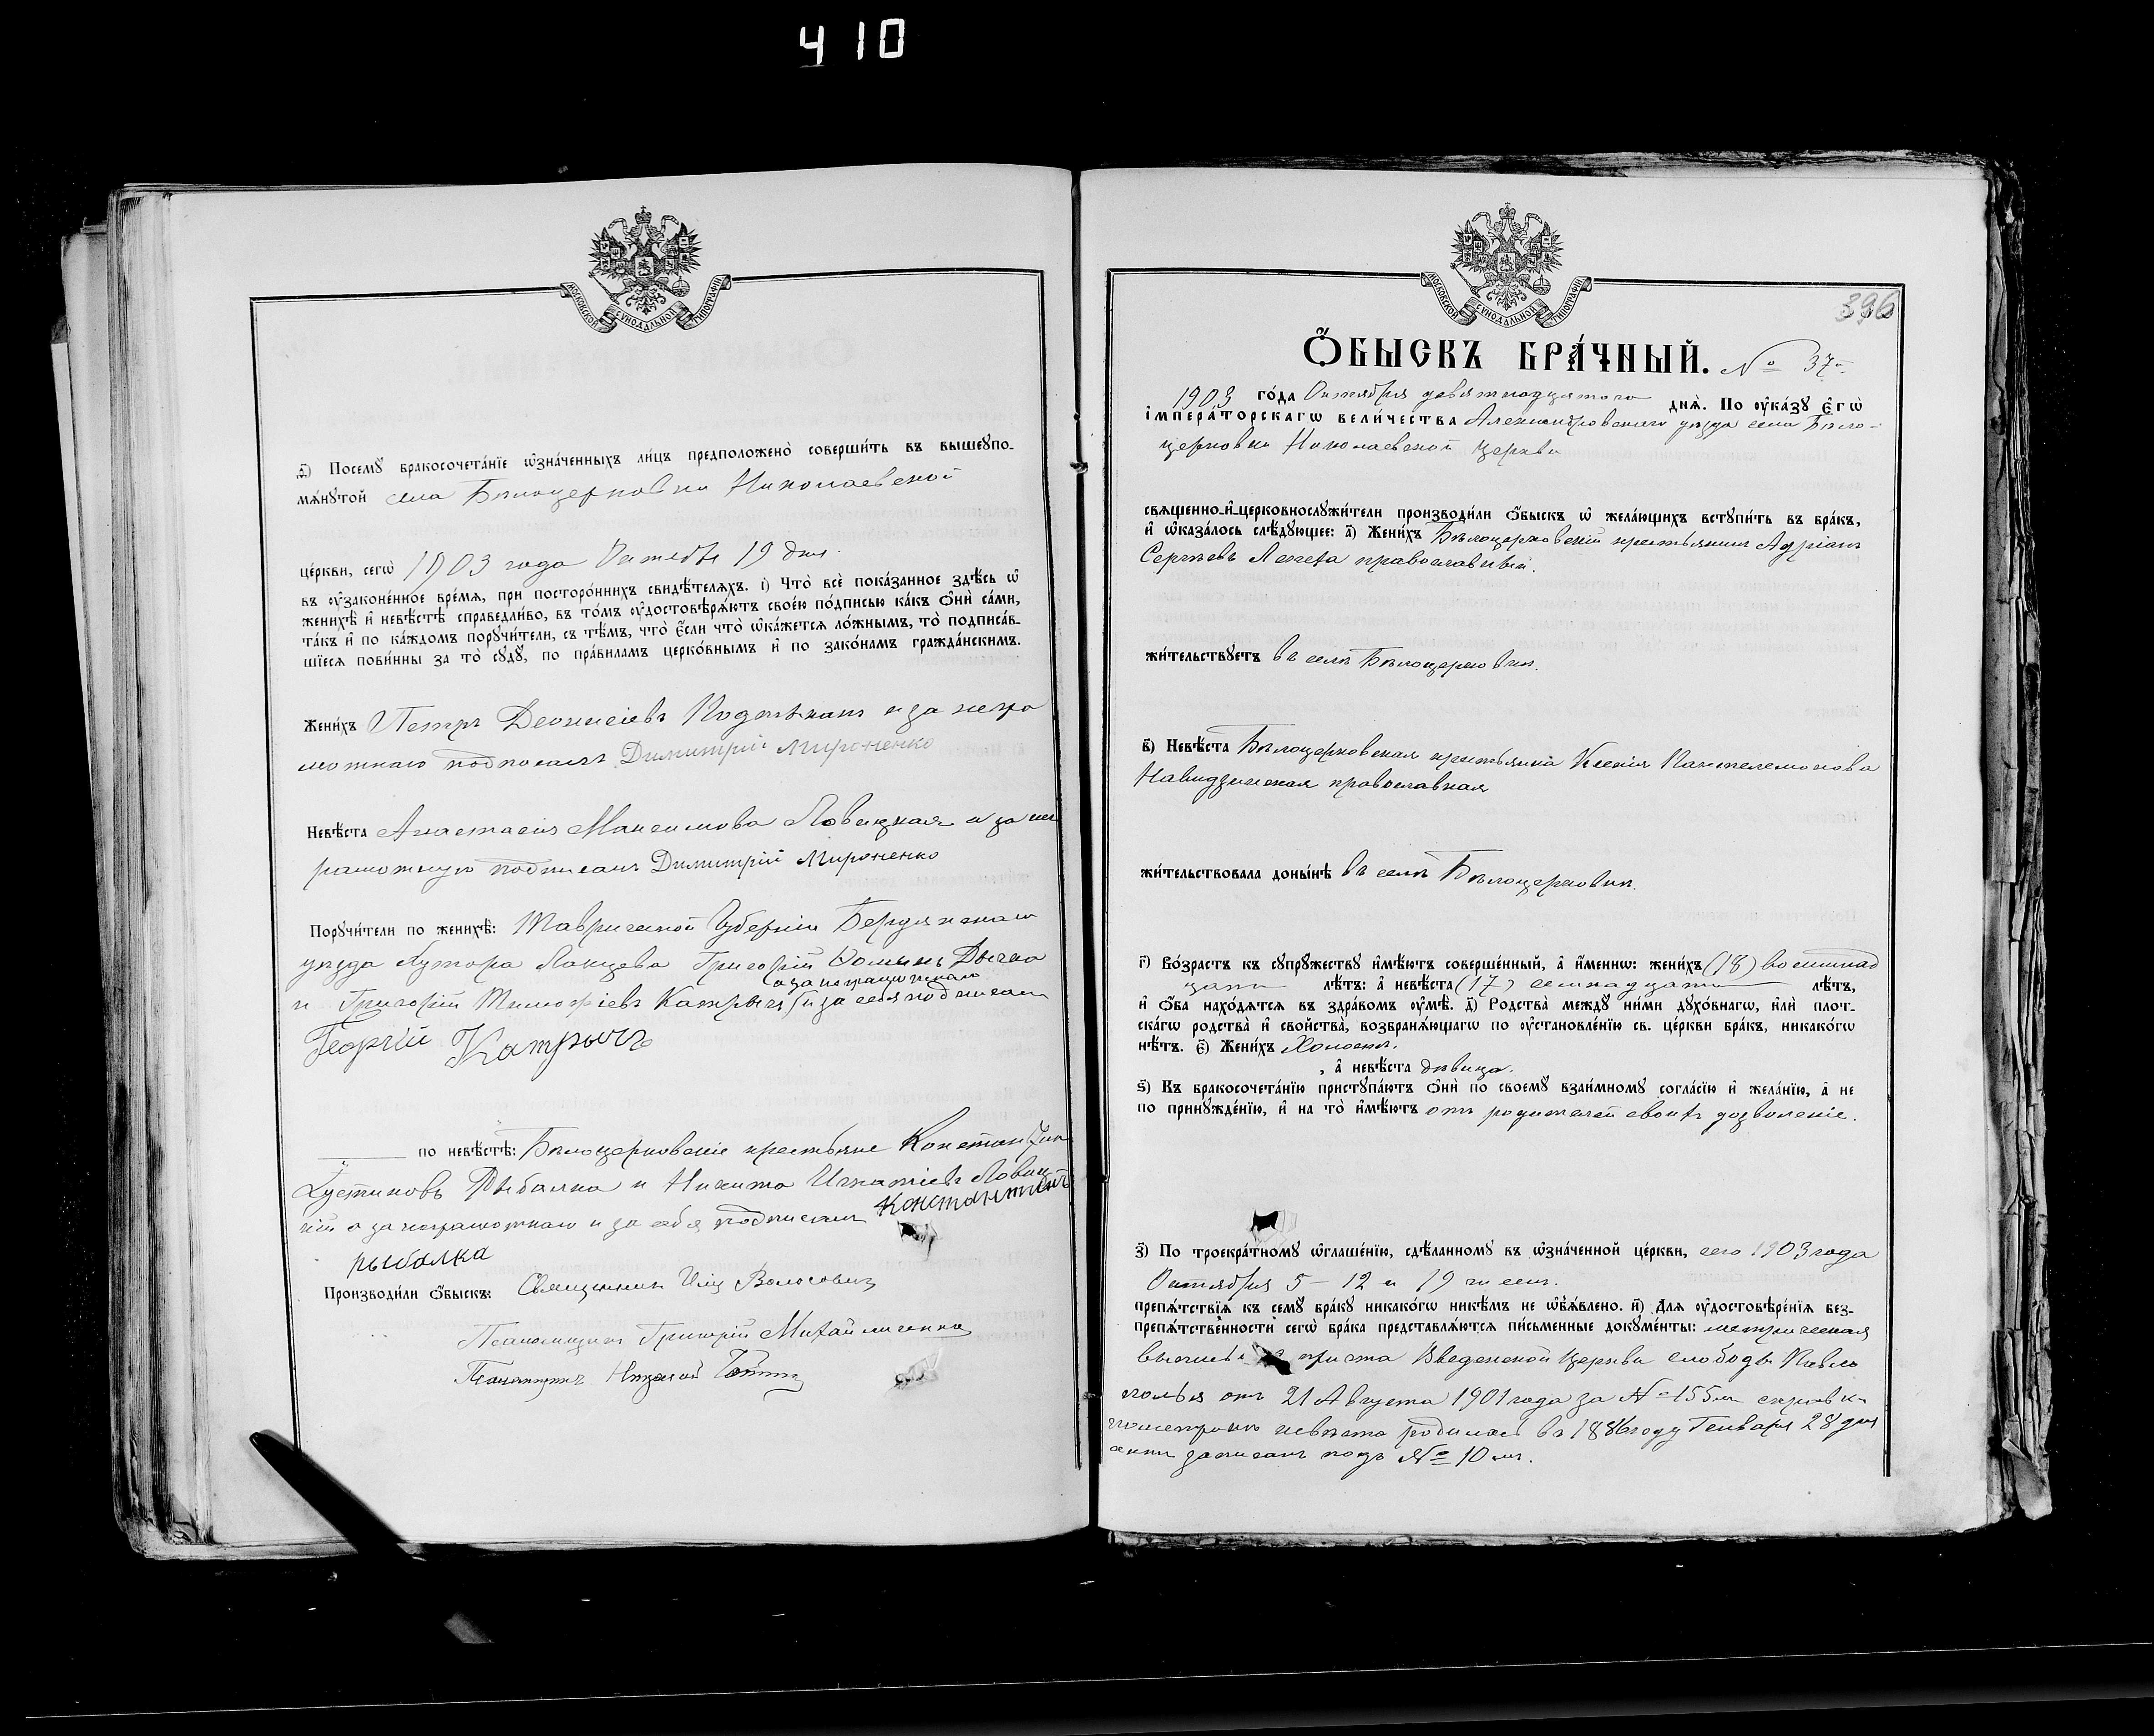 410
МОСКОВСКОЙ СУНОДАЛЬНОЙ ТИПОГРАФІИ
д҃) Посемꙋ бракосочета́нїе ѡ҆зна́ченныхъ ли́цъ предположено̀ соверши́ть въ вышеꙋпо-
мѧ́нꙋтой села Бѣлоцерковки Николаевской
це́ркви, сегѡ̀ 1903 года Октября 19 дня
въ ᲂу҆законе́нное вре́мѧ, при посторо́ннихъ свидѣ́телѧхъ. і҃) Что̀ всѐ пока́занное здѣ́сь ѡ҆
женихѣ̀ и҆ невѣ́стѣ справедли́во, въ то́мъ ᲂу҆достовѣрѧ́ютъ свое́ю по́дписью ка́къ ѻ҆нѝ са́ми,
та́къ и҆ по ка́ждомъ порꙋчи́тели, съ тѣ́мъ, что̀ є҆́сли что̀ ѡ҆ка́жетсѧ ло́жнымъ, то̀ подписа́в-
шїесѧ пови́нны за то̀ сꙋдꙋ̀, по пра́виламъ церко́внымъ и҆ по зако́намъ гражда́нскимъ.
Жени́хъ Петръ Деонисіевъ а за негра
мотнаго подписалъ Димитрій Мироненко
Невѣ́ста Анастасія Максимова Ловицкая а за не
рамотную подписалъ Димитрій Мироненко
Порꙋчи́тели по женихѣ̀: Таврической Губерніи Бердянскаго
уѣзда Хутора Григорій Ѳоминъ
а за неграмотнаго
и Григорій Тимофіевъ Катрычъ и за себя подписалъ
Георгій Катрычъ
по невѣ́стѣ: Бѣлоцерковскіе крестьяне Константинъ
Іустиновъ Рыбалка и Никита Игнатіевъ Ловиц
кій а за неграмотнаго и за себя подписалъ Константинъ
рыбалка
Производи́ли ѻ҆́быскъ: Священникъ Волосовичъ
Псаломщикъ Григорій Михайличенко
Псаломщикъ Николай
МОСКОВСКОЙ СУНОДАЛЬНОЙ ТИПОГРАФІИ
396
Ѻ҆́БЫСКЪ БРА́ЧНЫЙ. № 37й
1903 го́да Октября девятнадцатаго днѧ̀. По ᲂу҆ка́зꙋ є҆гѡ̀
і҆мпера́торскагѡ вели́чества Александровскаго уѣзда села Бѣло-
церковки Николаевской церкви
свѧщенно-и҆-церковнослꙋжи́тели производи́ли ѻ҆́быскъ ѡ҆ жела́ющихъ встꙋпи́ть въ бра́къ,
и҆ ѡ҆каза́лось слѣ́дꙋющее: а҃) Жени́хъ Бѣлоцерковскій крестьянинъ Адріанъ
Сергѣевъ Легета православный.
жи́тельствꙋетъ въ селѣ Бѣлоцерковкѣ.
в҃) Невѣ́ста Бѣлоцерковская крестьянка Ксенія Пантелемонова
православная
жи́тельствовала доны́нѣ въ селѣ Бѣлоцерковкѣ.
г҃) Во́зрастъ къ сꙋпрꙋ́жествꙋ и҆мѣ́ютъ соверше́нный, а҆ и҆́менно: жени́хъ (18) восемнад
цати лѣ́тъ: а҆ невѣ́ста (17) семнадцати лѣ́тъ,
и҆ ѻ҆́ба нахо́дѧтсѧ въ здра́вомъ ᲂу҆мѣ̀. д҃) Родства̀ междꙋ̀ ни́ми дꙋхо́внагѡ, и҆лѝ плот-
ска́гѡ родства̀ и҆ сво́йства, возбранѧ́ющагѡ по ᲂу҆становле́нїю св. це́ркви бра́къ, никако́гѡ
нѣ́тъ. є҃) Жени́хъ Холостъ.
, а҆ невѣ́ста дѣвица.
ѕ҃) Къ бракосочета́нїю пристꙋпа́ютъ ѻ҆нѝ по своемꙋ̀ взаи́мномꙋ согла́сїю и҆ жела́нїю, а҆ не
по принꙋжде́нїю, и҆ на то̀ и҆мѣ́ютъ отъ родителей своихъ дозволеніе.
з҃) По троекра́тномꙋ ѡ҆глаше́нїю, сдѣ́ланномꙋ въ ѡ҆зна́ченной це́ркви, сего 1903 года
Октября 5 - 12 и 19 чиселъ.
препѧ́тствїѧ къ семꙋ̀ бра́кꙋ никако́гѡ никѣ́мъ не ѡ҆б̾ѧ́влено. и҃) Длѧ ᲂу҆достовѣре́нїѧ без-
препѧ́тственности сегѡ̀ бра́ка представлѧ́ютсѧ пи́сьменные докꙋме́нты: метрическая
выпись причта Введенской Церкви слободы
отъ 21 Августа 1901 года за № 155мъ
невѣста родилась въ 1886 году Генваря 28 дня
актъ записанъ подъ № 10мъ.